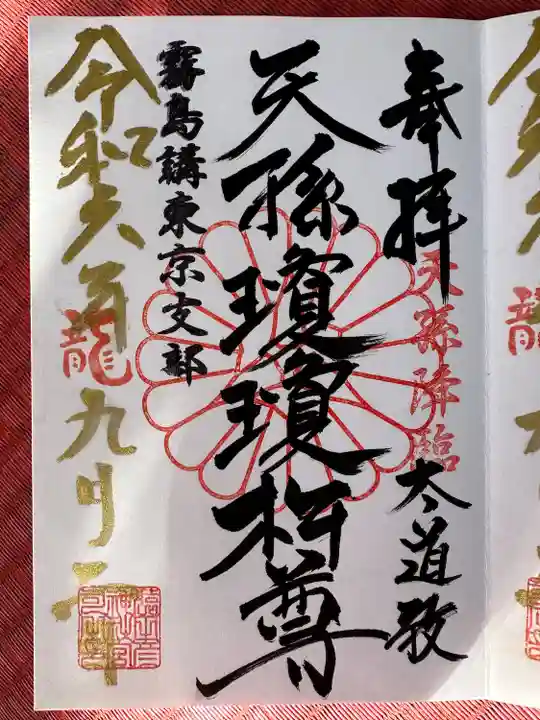 奉拝
天孫降臨
太道教
天孫瓊瓊杵尊
霧島講東京支部
令和六年
龍
九月
龍